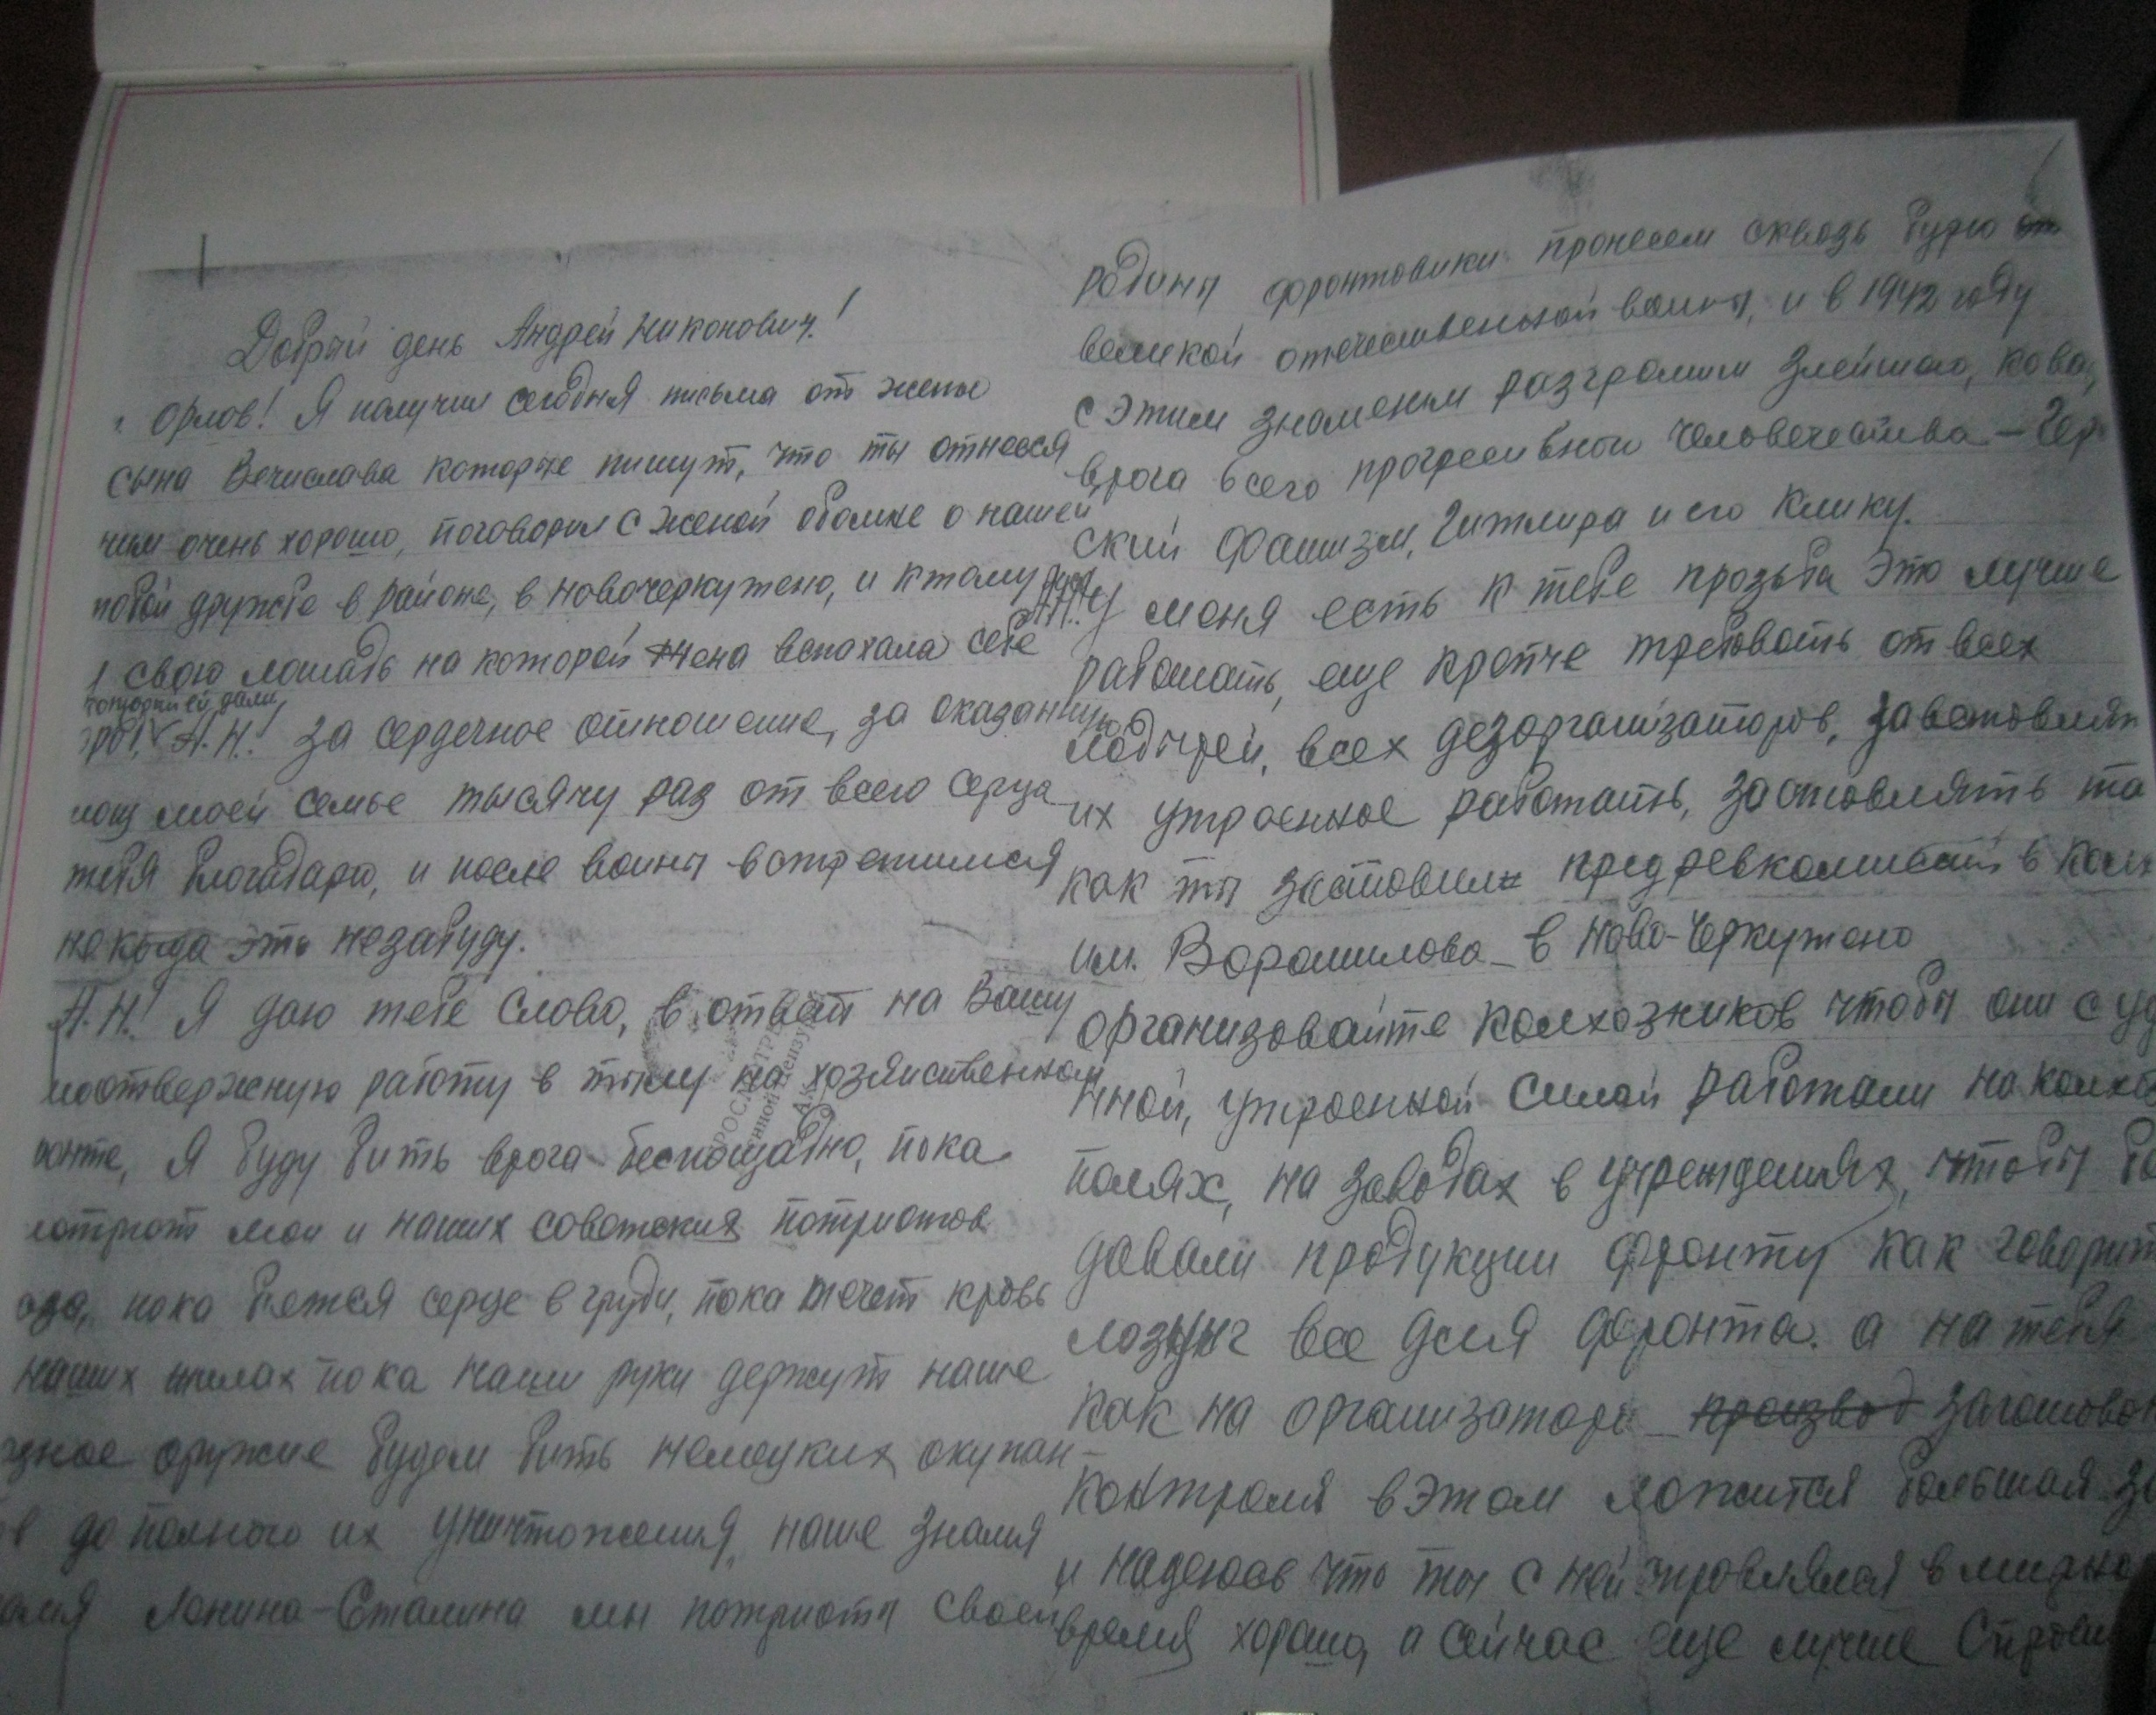 Добрый день Андрей Никонович!
Орлов! Я получил сегодня письма от жены
сына Вечислава которые пишут, что ты отнесся
ним очень хорошо, поговорил с женой обомне о нашей
тобой дружбе в районе, в новочеркутено, и ктому
свою лошадь на которой жена вспахала себе
который ей дали
А.Н! за сердечное отношение, за оказанную
мощ моей семье тысячу раз от всего серца
тебя благадарю, и после воины встретимся
некогда это незабуду.
А.Н! Я даю тебе слово, в ответ на Вашу
моотвержную работу в тылу на хозяиственном
ронте, Я буду бить врага беспощадно, пока
мотрят мои и наших советских потриотов
аза, пока бьется серце в груди, пока течет кровь
наших жилах пока наши руки держут наше
оружие будем бить немецких окупан-
в до полного их уничтожения, наше знамя
Ленина-Сталина мы потриоты своей
родины фронтовики пронесем сквозь бурю
великой отечественной воины, и в 1942 году
с этим знаменем разгромим злейшего,
врага всего прогресивного человечества - Гер
ский фашизм, Гитлира и его клику.
А.Н! У меня есть к тебе прозьба это лучше
работать, еще крепче требовать от всех
лодырей, всех дезорганізаторов, заставлять
их утроенное работать, заставлять та
как ты заставил предревкомисии в кол
им. Ворошилова в Ново-Черкутено
организовайте колхозников чтобы они с уд
нной, утроенной силой работали на колхоз
полях, на заводах в учреждениях, чтобы бо
давали продукции фронту как говорит
лозунг все для фронта. а на тебя
как на организатора производ заготовок
контроля в этом ложится большая за
и надеюсь что ты с ней справлялся в мирное
время хорошо, а сейчас еще лучше справи